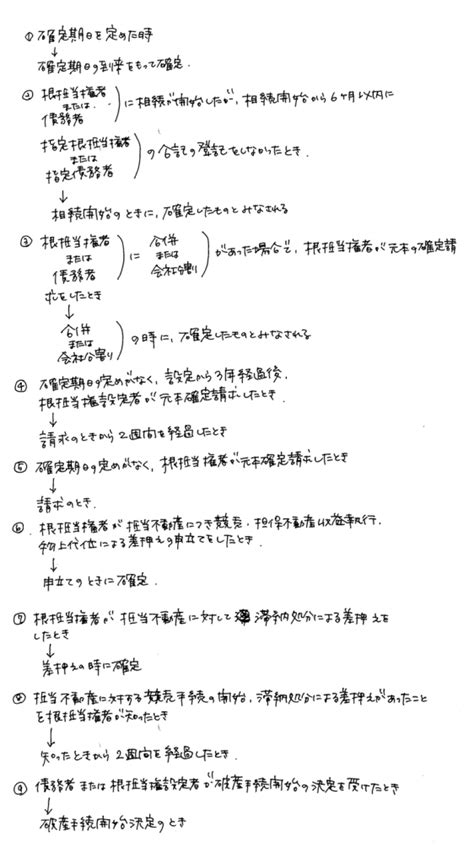 ① 確定期日を定めた時
↓
確定期日の到来をもって確定.
② 根抵当権者
または.
債務者
に相続が開始したが, 相続開始から6ヶ月以内に
指定根抵当権者
または
指定債務者
の合記の登記をしなかったとき.
↓
相続開始のときに, 確定したものとみなされる
③ 根抵当権者
または
債務者
に
合併
または
会社分割
があった場合で, 根抵当権者が元本の確定請
求をしたとき
↓
合併
または
会社分割
の時に, 確定したものとみなされる
④ 確定期日の定めがなく, 設定から3年経過後,
根抵当権設定者が元本確定請求したとき.
↓
請求のときから2週間を経過したとき
⑤ 確定期日の定めがなく, 根抵当権者が元本確定請求したとき
↓
請求のとき.
⑥ 根抵当権者が抵当不動産につき競売・担保不動産収益執行.
物上代位による差押えの申立てをしたとき.
↓
申立てのときに確定.
⑦ 根抵当権者が抵当不動産に対して滞納処分による差押えを
したとき
↓
差押えの時に確定
⑧ 抵当不動産に対する競売手続の開始, 滞納処分による差押えがあったこと
を根抵当権者が知ったとき
↓
知ったときから2週間を経過したとき.
⑨ 債務者または根抵当権設定者が破産手続開始の決定を受けたとき
↓
破産手続開始決定のとき